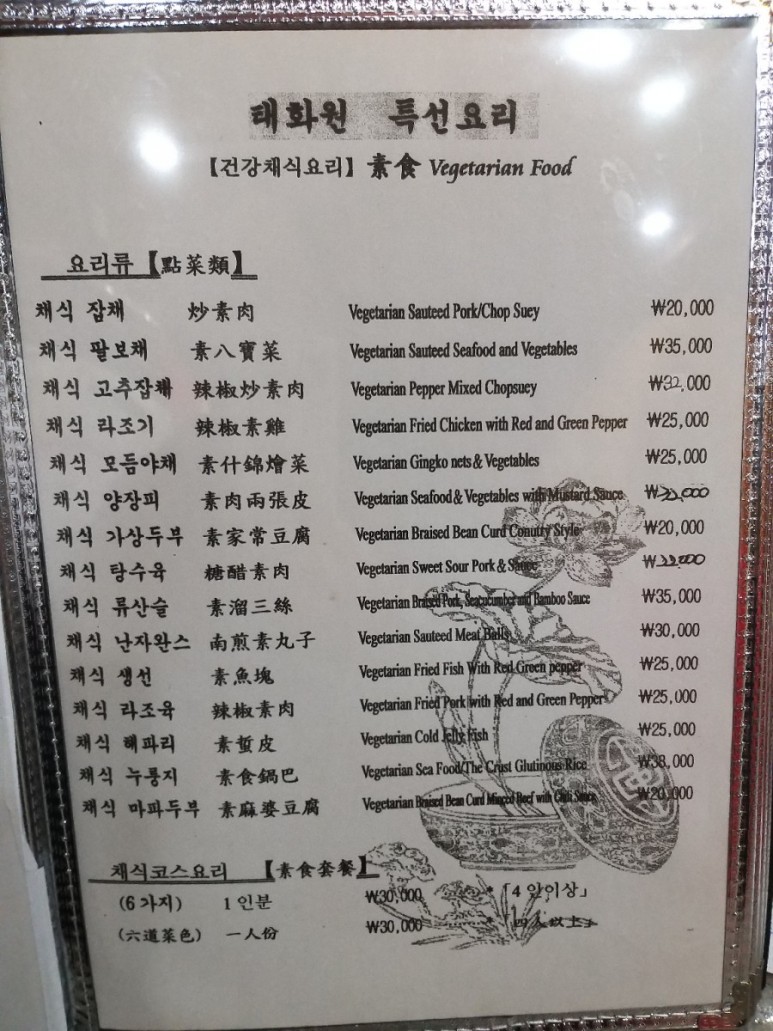 태화원 특선요리
【건강채식요리】 素食 Vegetarian Food
요리류【點菜類】
채식 잡채 炒素肉 Vegetarian Sauteed Pork/Chop Suey ₩20,000
채식 팔보채 素八寶菜 Vegetarian Sauteed Seafood and Vegetables ₩35,000
채식 고추잡채 辣椒炒素肉 Vegetarian Pepper Mixed Chopsuey ₩32,000
채식 라조기 辣椒素雞 Vegetarian Fried Chicken with Red and Green Pepper ₩25,000
채식 모듬야채 素什錦燴菜 Vegetarian Gingko nets & Vegetables ₩25,000
채식 양장피 素肉兩張皮 Vegetarian Seafood & Vegetables with Mustard Sauce ₩
채식 가상두부 素家常豆腐 Vegetarian Braised Bean Curd Conutry Style ₩20,000
채식 탕수육 糖醋素肉 Vegetarian Sweet Sour Pork & Sauce ₩
채식 류산슬 素溜三絲 Vegetarian Braised Pork, Seacucumber and Bamboo Sauce ₩35,000
채식 난자완스 南煎素丸子 Vegetarian Sauteed Meat Balls ₩30,000
채식 생선 素魚塊 Vegetarian Fried Fish With Red Green pepper ₩25,000
채식 라조육 辣椒素肉 Vegetarian Fried Pork with Red and Green Pepper ₩25,000
채식 해파리 素蜇皮 Vegetarian Cold Jelly Fish ₩25,000
채식 누룽지 素食鍋巴 Vegetarian Sea Food/The Crust Glutinous Rice ₩38,000
채식 마파두부 素麻婆豆腐 Vegetarian Braised Bean Curd Minced Beef with Chili Sauce ₩20,000
채식코스요리 【素食套餐】
(6가지) 1인분 ₩30,000 *「4인이상」
(六道菜色) 一人份 ₩30,000 *「四人以上」